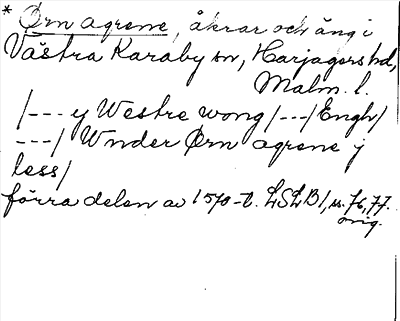 * Ørn agrene, åkrar och äng i
Västra Karaby sn, Harjagers hd,
Malm. l.
/--- y Westre wong /---/ Engh /
---/ Wnder Ørn agrene j
less /
förra delen av 1570-t. LSLB 1, s. 76, 77.
orig.